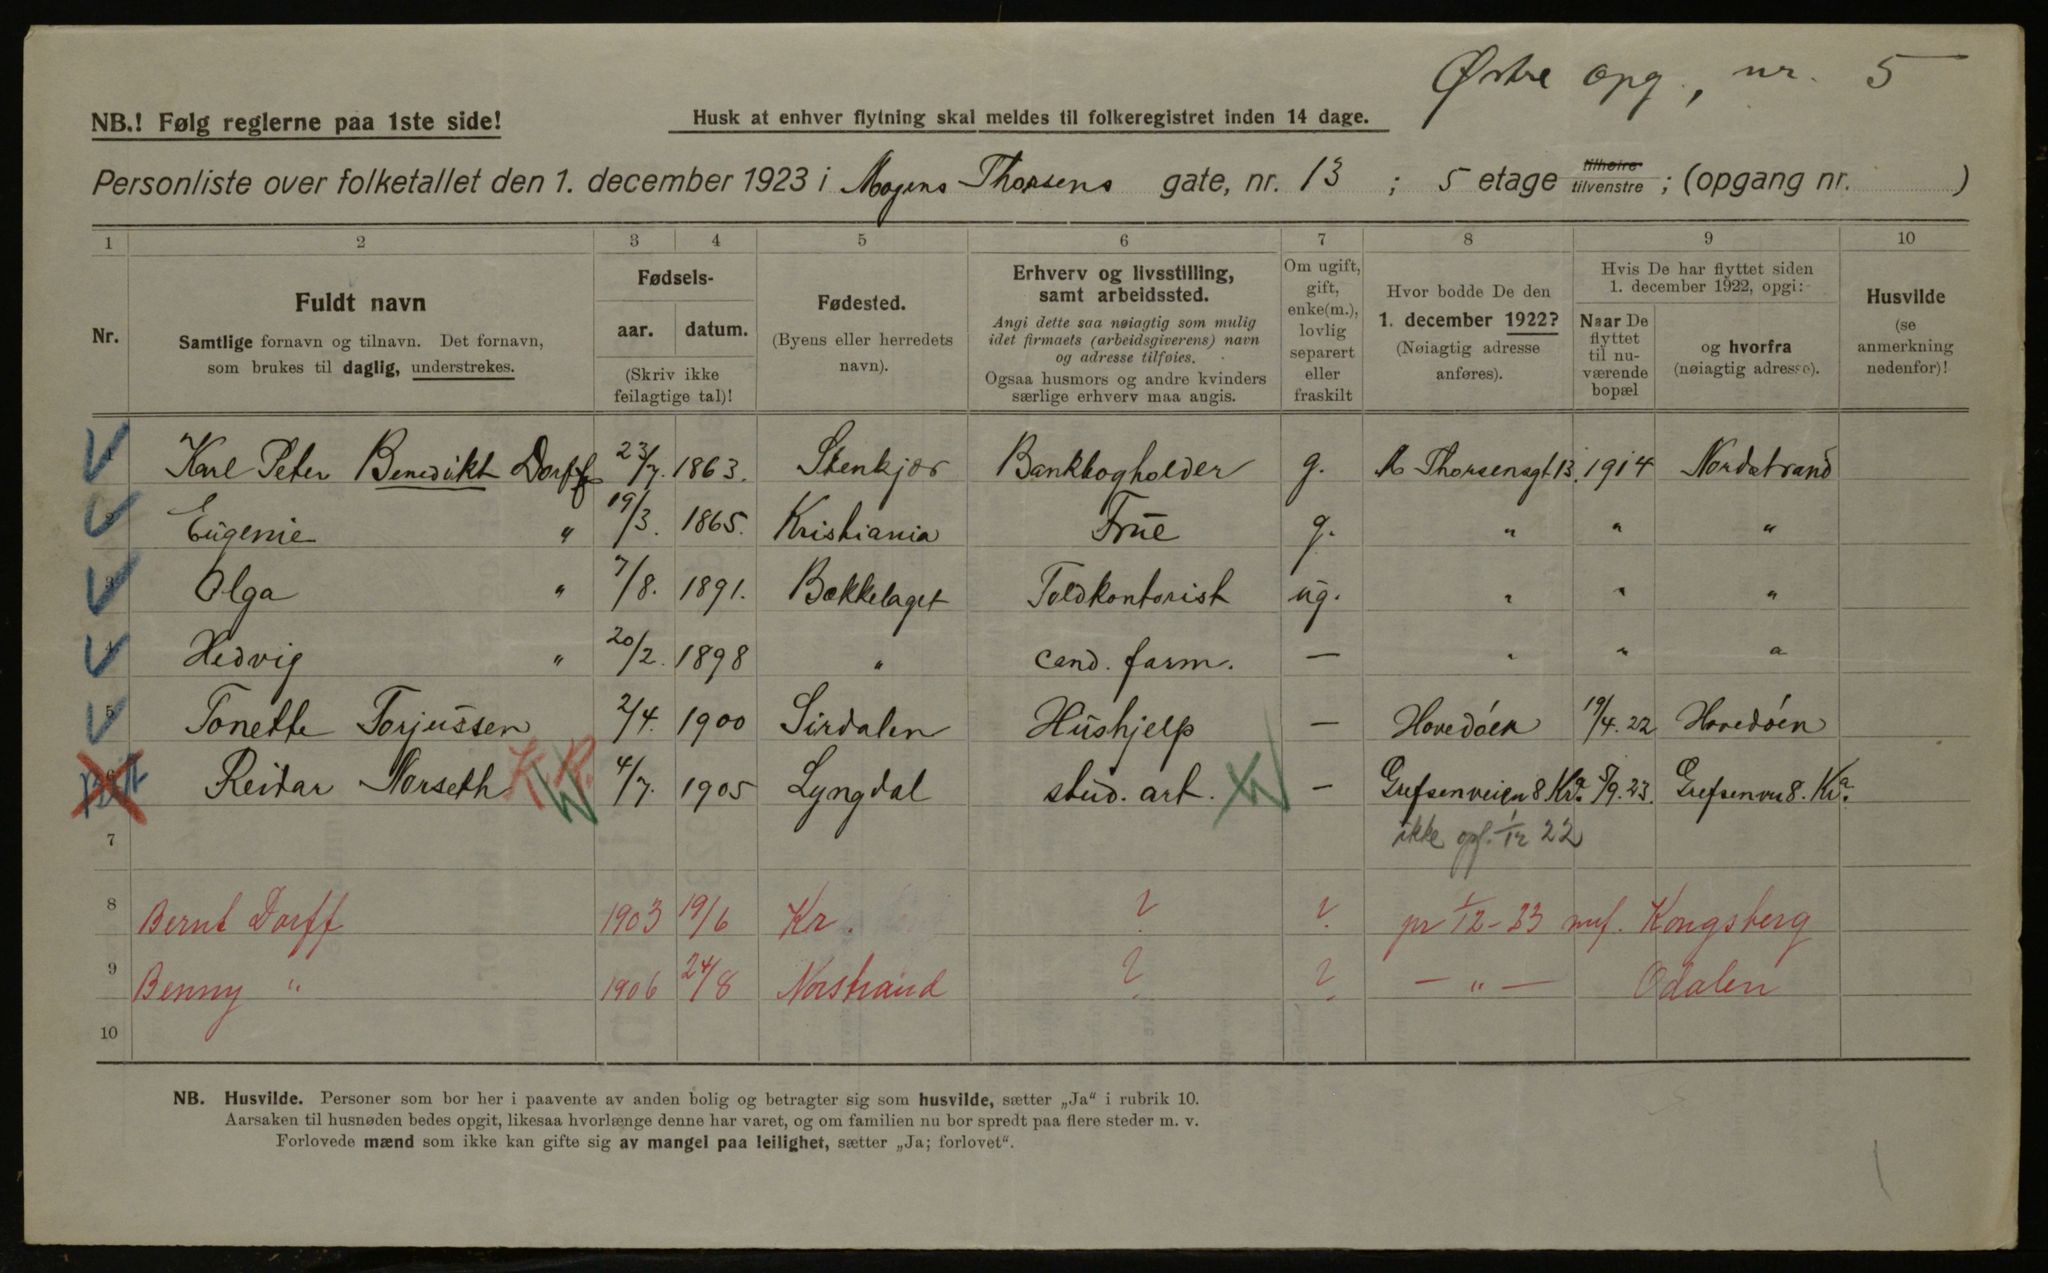 Østre opg., nr. 5
NB.! Følg reglerne paa 1ste side!
Husk at enhver flytning skal meldes til folkeregistret inden 14 dage.
Personliste over folketallet den 1. december 1923 i Mogens Thorsens gate, nr. 13 ; 5 etage tilhøire tilvenstre ; (opgang nr. )
1 2 3 4 5 6 7 8 9 10
Nr.
Fuldt navn
Samtlige fornavn og tilnavn. Det fornavn,
som brukes til daglig, understrekes.
Fødsels-
aar. datum.
(Skriv ikke
feilagtige tal)!
Fødested.
(Byens eller herredets
navn).
Erhverv og livsstilling,
samt arbeidssted.
Angi dette saa nøiagtig som mulig
idet firmaets (arbeidsgiverens) navn
og adresse tilføies.
Ogsaa husmors og andre kvinders
særlige erhverv maa angis.
Om ugift,
gift,
enke(m.),
lovlig
separert
eller
fraskilt
Hvor bodde De den
1. december 1922?
(Nøiagtig adresse
anføres).
Hvis De har flyttet siden
1. december 1922, opgi:
Naar De
flyttet
til nu-
værende
bopæl
og hvorfra
(nøiagtig adresse).
Husvilde
(se
anmerkning
nedenfor)!
Karl Peter Benedikt Dorff 23/7. 1863. Stenkjær Bankbogholder g. M Thorsensgt. 13. 1914 Nordstrand
2 Eugenie " 19/3. 1865. Kristiania Frue g. " " "
3 Olga " 7/8. 1891. Bækkelaget Toldkontorist ug. " " "
4 Hedvig " 20/2. 1898 " cand. farm. — " " "
5 Tonette Torjussen 2/4. 1900 Sirdalen Hushjelp — Hovedøen 19/4. 22 Hovedøen
6 Reidar Norseth K.R. 4/7. 1905 Lyngdal stud. art. — Grefsenveien 8 Kra. 5/9. 23. Grefsenvn 8. Kra.
7 ikke opf. 1/12 22
8 Bernt Dorff 1903 19/6 Kr. ? ? pr 1/12-23 mf. Kongsberg
9 Benny " 1906 24/8 Norstrand ? ? — " — Odalen
10
NB. Husvilde. Personer som bor her i paavente av anden bolig og betragter sig som husvilde, sætter „Ja“ i rubrik 10.
Aarsaken til husnøden bedes opgit, likesaa hvorlænge denne har varet, og om familien nu bor spredt paa flere steder m. v.
Forlovede mænd som ikke kan gifte sig av mangel paa leilighet, sætter „Ja; forlovet“.